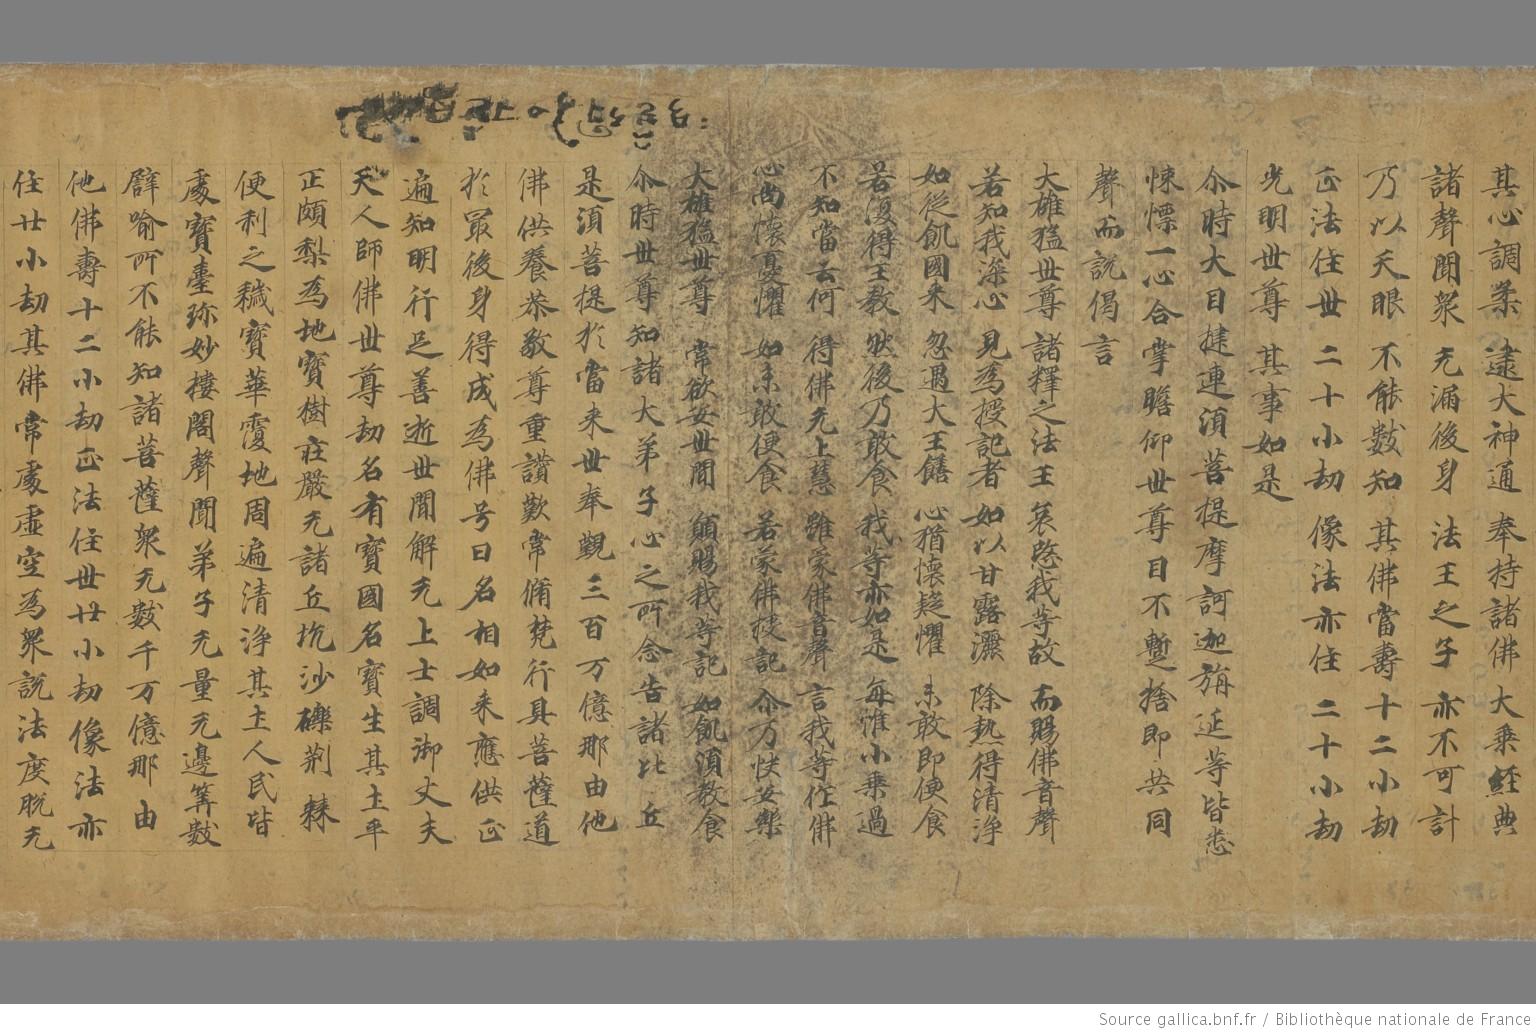 其心調柔 逮大神通 奉持諸佛 大乘經典
諸聲聞眾 无漏後身 法王之子 亦不可計
乃以天眼 不能數知 其佛當壽 十二小劫
正法住世 二十小劫 像法亦住 二十小劫
光明世尊 其事如是
尒時大目揵連須菩提摩訶迦旃延等皆悉
悚慄一心合掌瞻仰世尊目不蹔捨即共同
聲而說偈言
大雄猛世尊 諸釋之法王 哀愍我等故 而賜佛音聲
若知我深心 見為授記者 如以甘露灑 除熱得清淨
如從飢國來 忽遇大王饍 心猶懷疑懼 未敢即便食
若復得王教 然後乃敢食 我等亦如是 每惟小乘過
不知當云何 得佛无上慧 雖蒙佛音聲 言我等作佛
心尚懷憂懼 如未敢便食 若蒙佛授記 尒乃快安樂
大雄猛世尊 常欲安世間 願賜我等記 如飢須教食
尒時世尊知諸大弟子心之所念告諸比丘
是須菩提於當來世奉觀三百万億那由他
佛供養恭敬尊重讚歎常脩梵行具菩薩道
於冣後身得成為佛号曰名相如來應供正
遍知明行足善逝世間解无上士調御丈夫
天人師佛世尊劫名有寶國名寶生其土平
正頗梨為地寶樹莊嚴无諸丘坑沙礫荊棘
便利之穢寶華覆地周遍清淨其土人民皆
處寶臺珎妙樓閣聲聞弟子无量无邊筭數
譬喻所不能知諸菩薩眾无數千万億那由
他佛壽十二小劫正法住世廿小劫像法亦
住廿小劫其佛常處虛空為眾說法度脫无
Source gallica.bnf.fr / Bibliothèque nationale de France